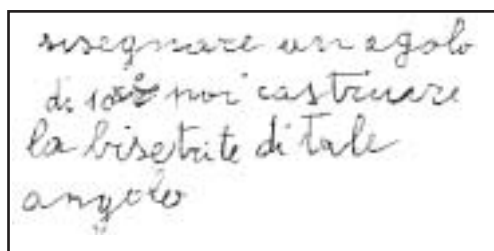 risegnare un agolo
di 10 noi castruare
la bisetrite di tale
angolo